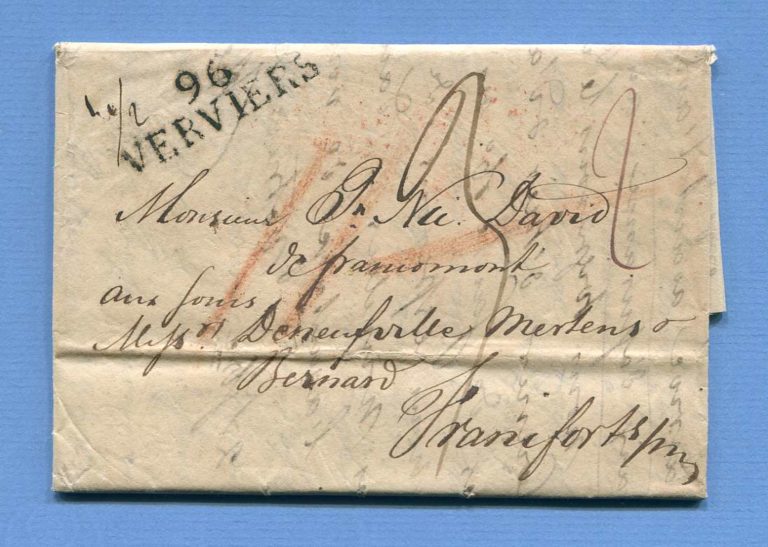 96
VERVIERS
Monsieur Pr. Nic. David
de francomont
aux soins
Messrs Deneufville Mertens &
Bernard
Francfort s/m